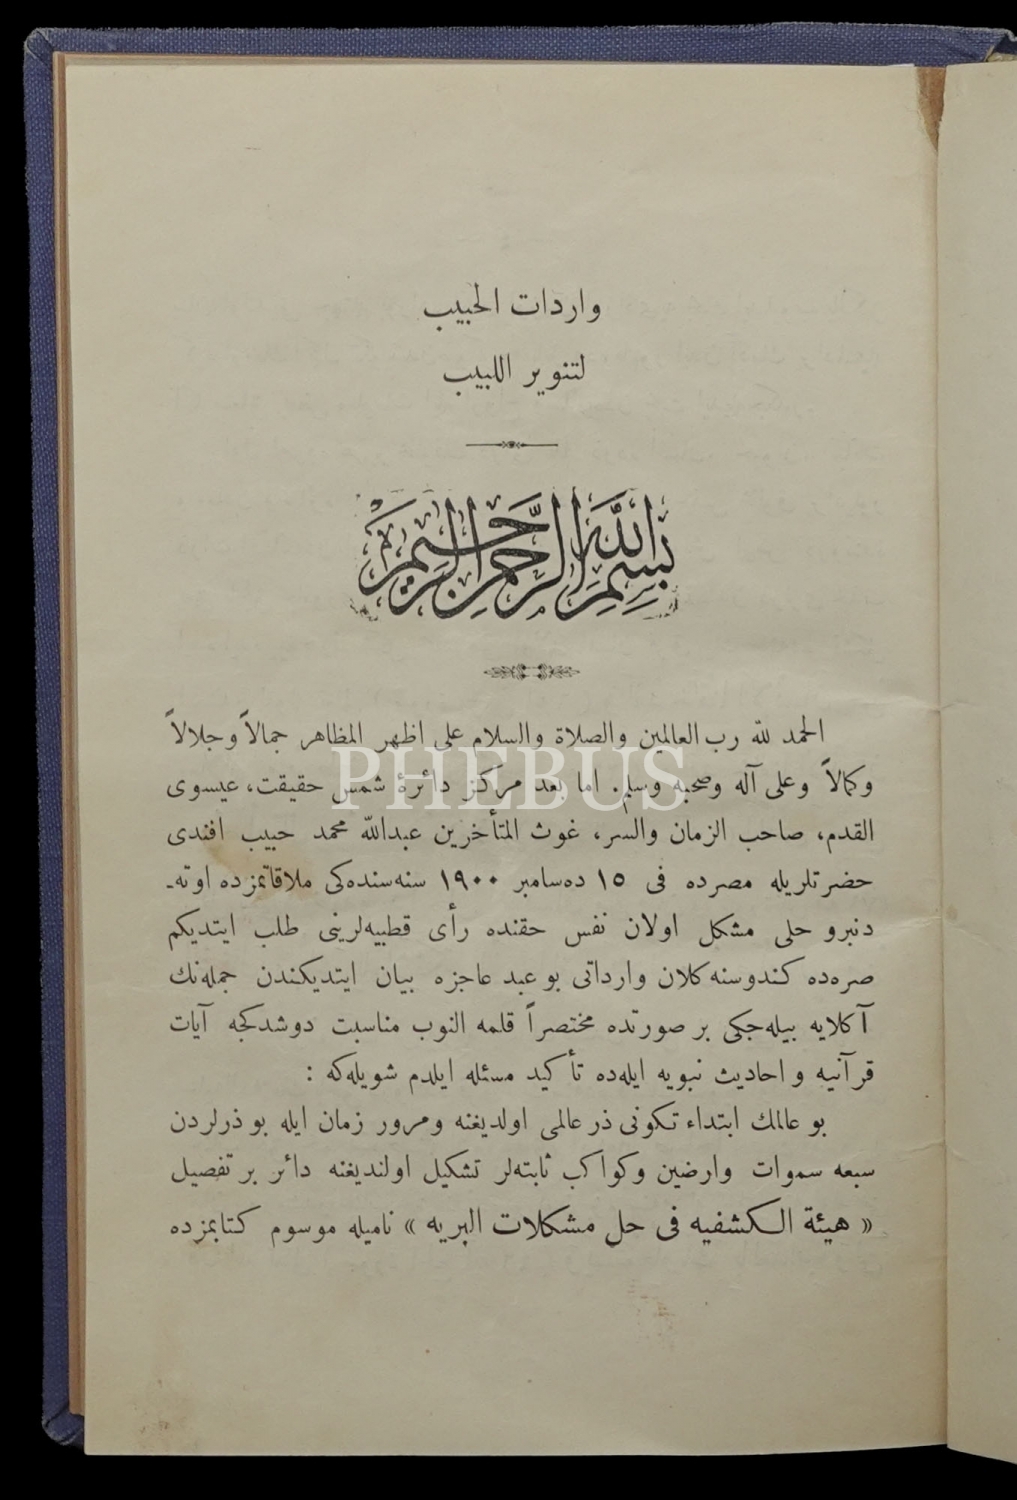 واردات الحبيب
لتنوير اللبيب
بسم الله الرحمن الرحيم
الحمد لله رب العالمين والصلاة والسلام على اظهر المظاهر جمالاً وجلالاً
وكمالاً وعلى آله وصحبه وسلم. اما بعد مركز دائرۀ شمس حقيقت، عيسوى
القدم، صاحب الزمان والسر، غوث المتأخرين عبدالله محمد حبيب افندى
حضرتلريله مصرده فى ١٥ ده‌سامبر ١٩٠٠ سنه‌سنده‌كى ملاقاتمزده اوته‌ـ
دنبرو حلى مشكل اولان نفس حقنده رأى قطبيه‌لرينى طلب ايتديكم
صره‌ده كندوسنه كلان وارداتى بو عبد عاجزه بيان ايتديكندن جمله‌نك
آكلايه بيله‌جكى بر صورتده مختصراً قلمه النوب مناسبت دوشدكجه آيات
قرآنيه و احاديث نبويه ايله‌ده تأكيد مسئله ايلدم شويله‌كه :
بو عالمك ابتداء تكونى ذر عالمى اولديغنه ومرور زمان ايله بو ذرلردن
سبعه سموات وارضين وكواكب ثابته‌لر تشكيل اولنديغنه دائر بر تفصيل
« هيئة الكشفيه فى حل مشكلات البريه » ناميله موسوم كتابمزده
PHEBUS